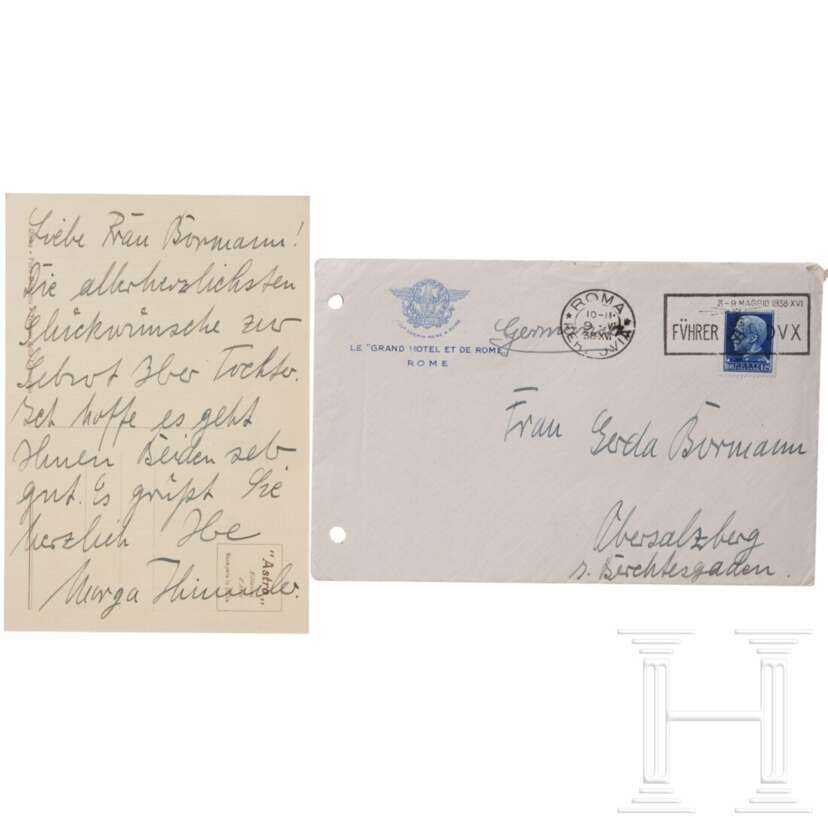 Liebe Frau Bormann!
Die allerherzlichsten
Glückwünsche zur
Geburt Ihrer Tochter.
Ich hoffe es geht
Ihnen Beiden sehr
gut. Es grüßt Sie
herzlich Ihre
Marga Himmler.
"Astro"
LE "GRAND HOTEL ET DE ROME"
ROME
Germania
ROMA
10-11
FERROVIA
3-9 MAGGIO 1938-XVI
FÜHRER DVX
Frau Gerda Bormann
Obersalzberg
b. Berchtesgaden.
H